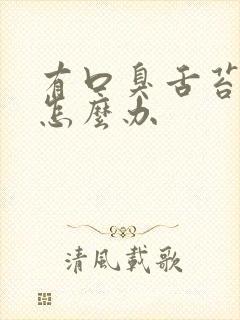 有口臭舌苔
怎麼办
清風載歌